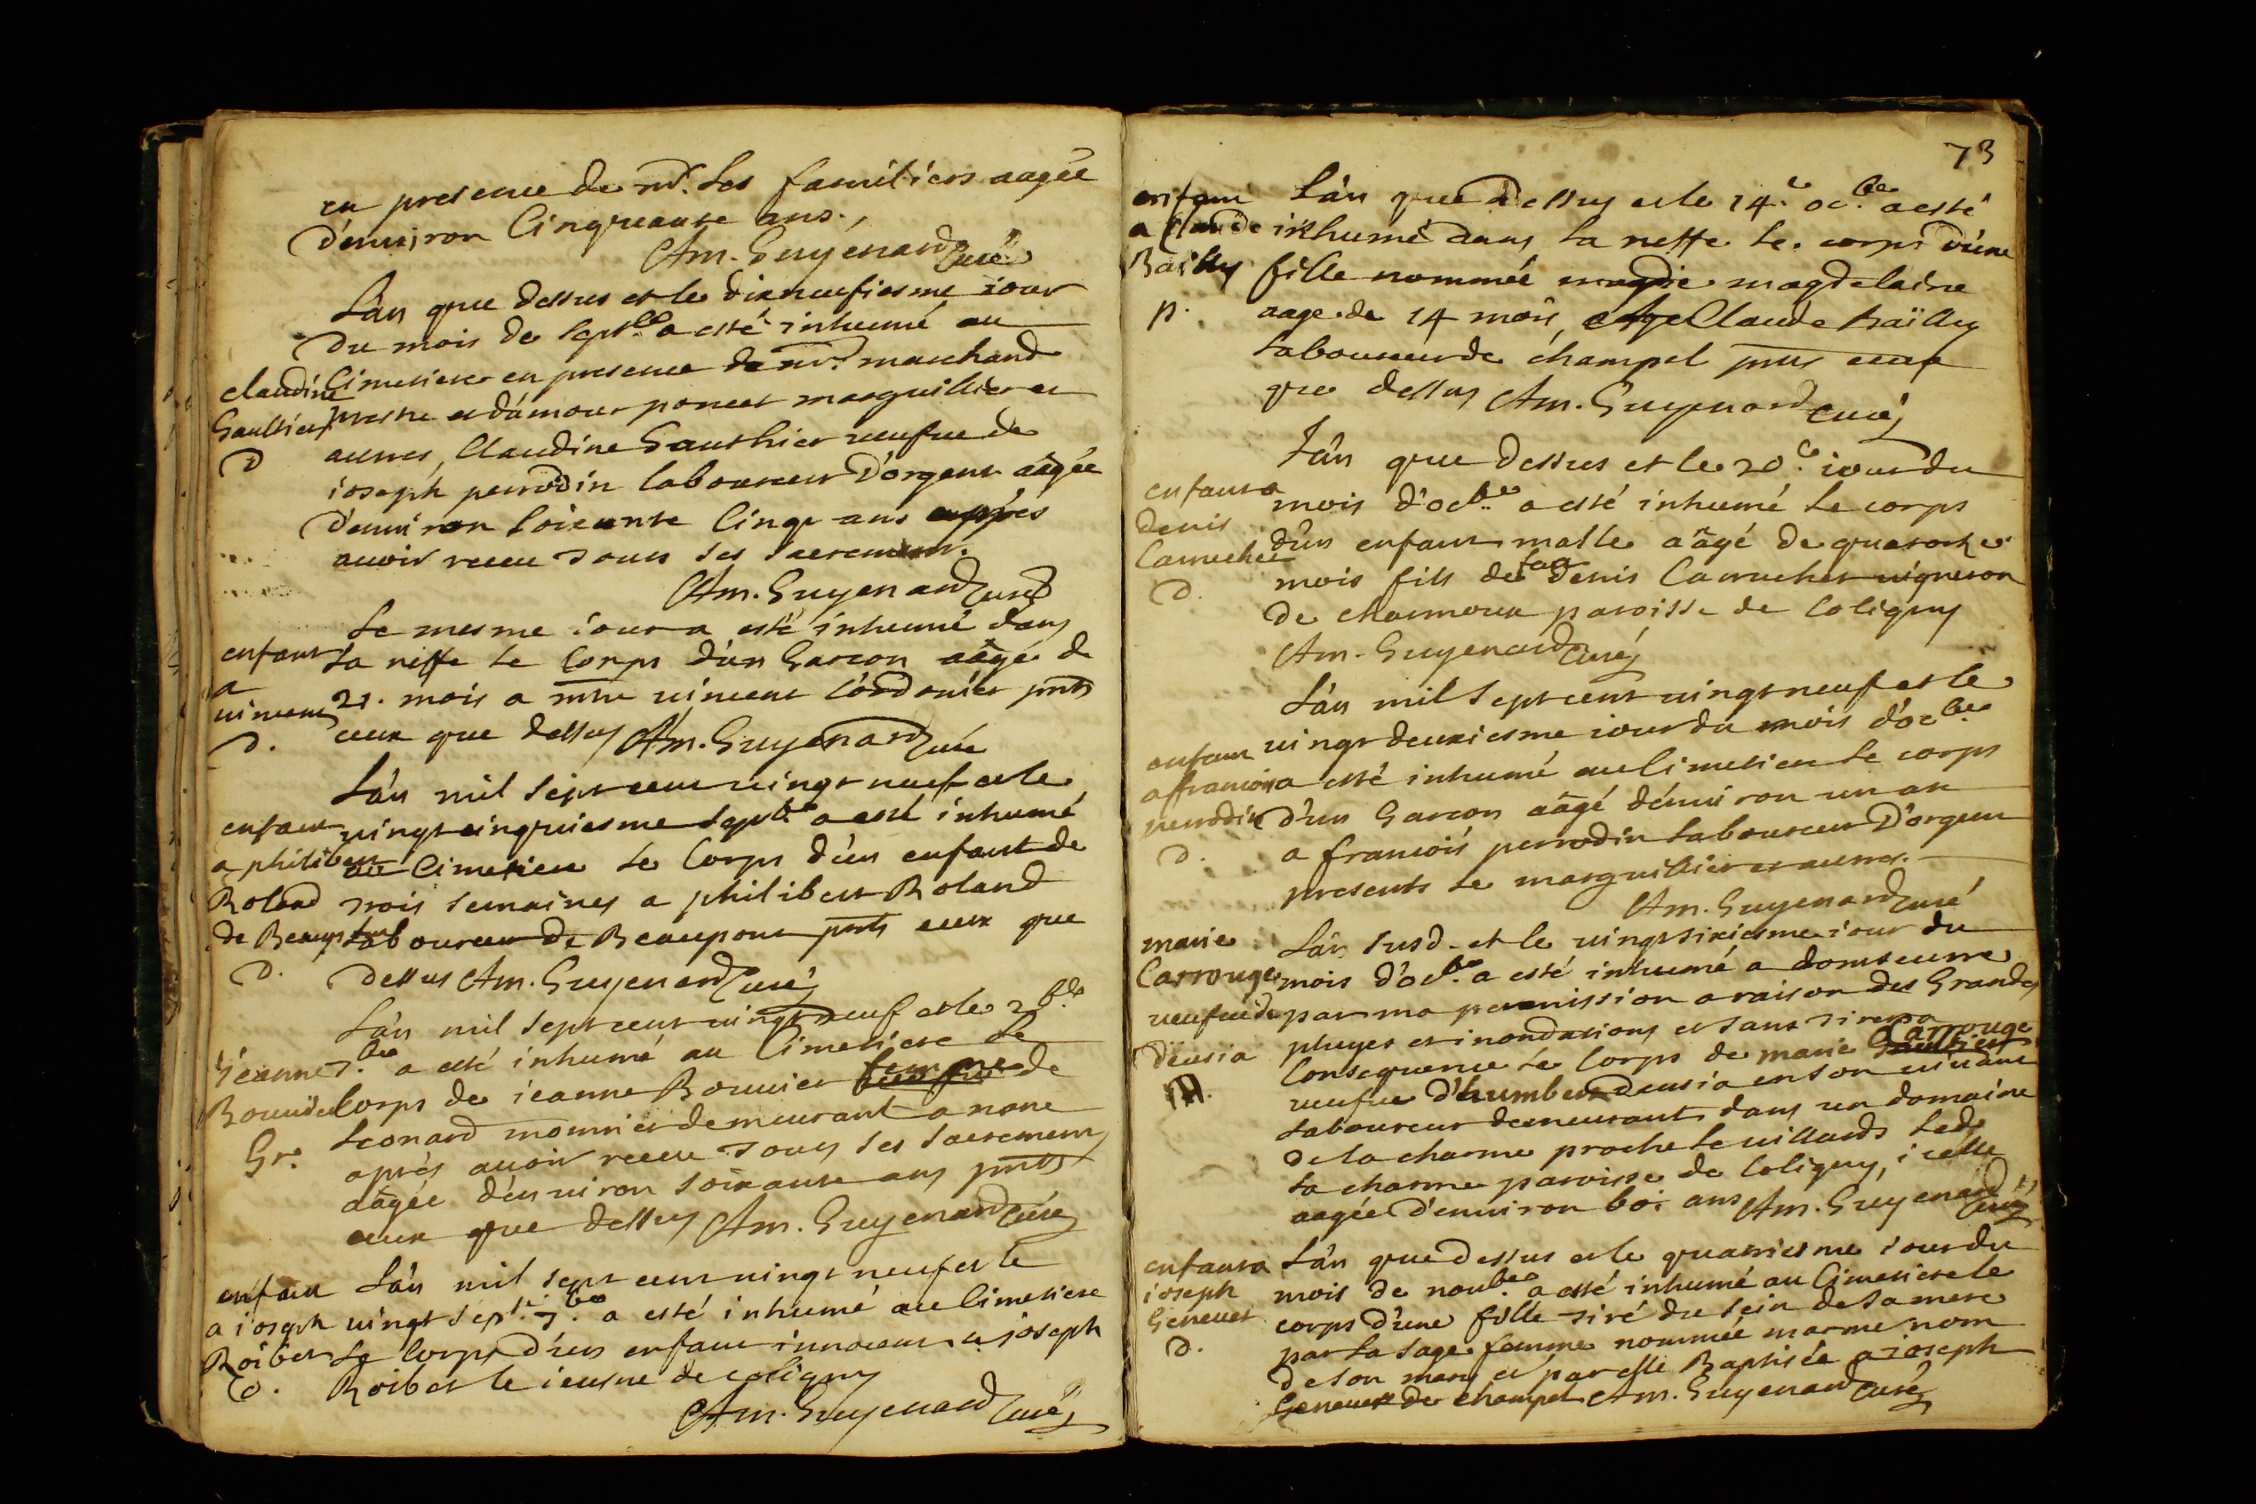 en presence de mrs. les familiers aagée
d'enuiron Cinquante ans.,
Am. Guyenard Curé
L'an que dessus et le dixneufiesme iour
du mois de sept.bre a esté inhumé au
Cimetiere en presence de mr. marchand
prestre et d'amour poncet marguillier et
autres, Claudine Gauthier ueufue de
ioseph perrodin laboureur D'orgent aâgée
d'enuiron soixante Cinq ans apprés
auoir receu tous ses sacrements.
Am. Guyenard Curé
claudine
Gaultier
D
Le mesme iour a esté inhumé dans
la neffe le Corps d'un Garcon aâgé de
21. mois a mtre uincent Cordonier pnts
ceux que dessus Am. Guyenard Curé
enfant
a
uincent
D.
L'an mil sept cent uingt neuf et le
uingt cinquiesme sept.bre a esté inhumé
au Cimetiere le Corps d'un enfant de
trois semaines a philibert Roland
laboureur de Beaupont pnts ceux que
dessus Am. Guyenard Curé
enfant
a philibert
Roland
de Beaupont
D.
L'an mil sept cent uingt neuf et le 26e
7.bre a esté inhumé au Cimetiere le
Corps de ieanne Bouuier femme de
Leonard monnier demeurant a nane
aprés auoir receu tous ses sacrements
aâgée d'enuiron soixante ans pnts
ceux que dessus Am. Guyenard Curé
Jeanne
Bouuier
Gr.
L'an mil sept cent uingt neuf et le
uingt sept.e 7.bre a esté inhumé au Cimetiere
Le Corps d'un enfant innocent a joseph
Roibet le ieusne de coligny
Am. Guyenard Curé
enfant
a ioseph
Roibet
D.
73
L'an que dessus et le 14.e oc.bre a esté
inhumé dans la neffe le corps d'une
fille nommée magdelaine
aage de 14 mois, a Claude Baïlly
laboureur de champel pnts ceux
que dessus Am. Guyenard Curé
enfant
a Claude
Bailly
p.
L'an que dessus et le 20.e iour du
mois d'oc.bre a esté inhumé le corps
d'un enfant malle aâgé de quatorze
mois fils de feu Denis Camuchet uigneron
de charmoux paroisse de Coligny
Am. Guyenard Curé
enfant a
denis
Camuchet
D.
L'an mil sept cent uingt neuf et le
uingt deuxiesme iour du mois d'oc.bre
a esté inhumé au Cimetiere le corps
d'un Garcon aâgé d'enuiron un an
a francois perrodin laboureur D'orgent
presents le marguillier et autres.
Am. Guyenard Curé
enfant
a francois
perrodin
D.
L'an susd. et le uingt sixiesme iour du
mois d'oc.bre a esté inhumé a domseurre
par ma permission a raison des Grandes
pluyes et inondations et sans tirer a
Consequence le Corps de marie Carrouge
ueufue d'humbert deusia en son uiuant
laboureur demeurant dans un domaine
de la charme proche le uillard led.
la charme paroisse de Coligny, icelle
aagée d'enuiron 60. ans Am. Guyenard Curé
marie
Carrouge
ueufue de
deusia
L'an que dessus et le quatriesme iour du
mois de nou.bre a esté inhumé au Cimetiere le
corps d'une fille tiré du sein de sa mere
par la sage femme nommée marme nom
de son mary et par elle Baptisée a ioseph
Geneuet de champel Am. Guyenard Curé
enfant a
ioseph
Geneuet
D.